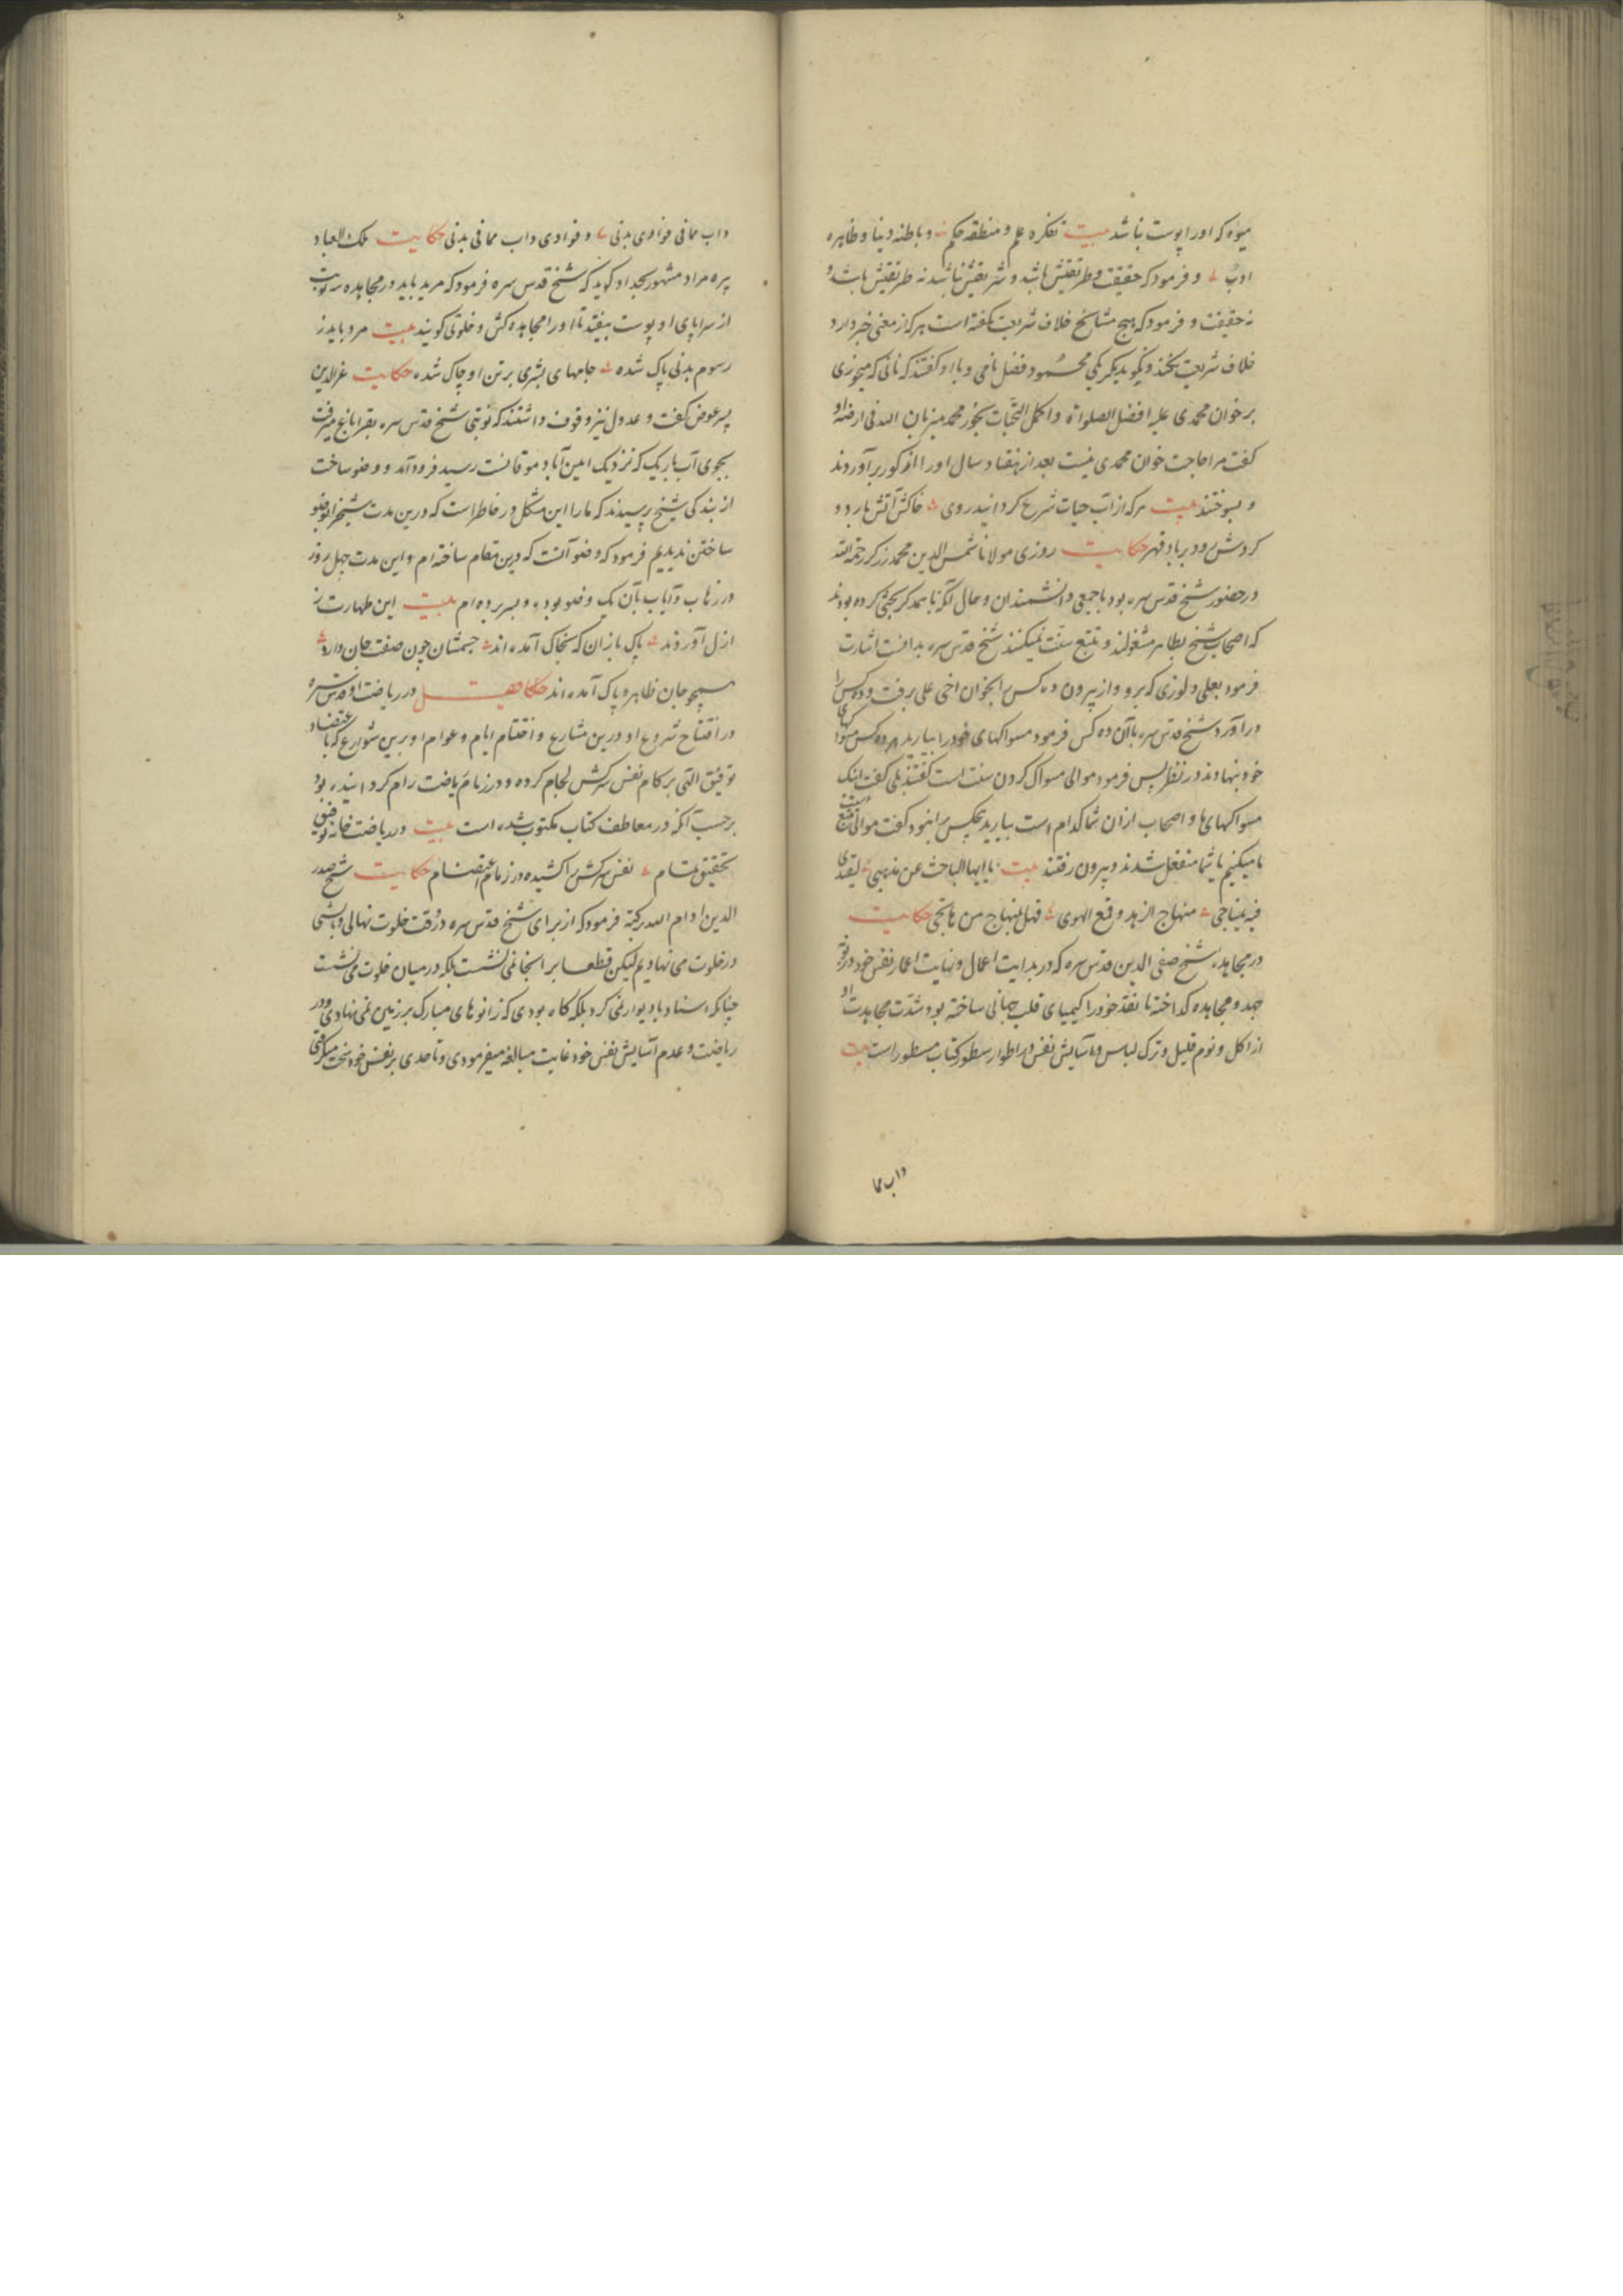 میوه که او را پوست نباشد بیت تفکره علم و منطقه حکم و باطنه دینا و ظاهره
ادب و فرمود که حقیقت و طریقتش باشد و شریعتش نباشد نه طریقتش باشد و
نه حقیقت و فرمود که هیچ مشایخ خلاف شریعت نکفته است هر که از معنی خبر دارد
خلاف شریعت نکند و نکوید یکی محمود فضل نامی و با او کفتند که نانی که میخوری
بر خوان محمدی علیه افضل الصلواة و اکمل التحیات بخور محمد میزبان الله فی ارضه او
کفت مرا حاجت خوان محمدی نیست بعد از هفتاد سال او را از کور برآوردند
و بسوختند بیت هر که از آب حیات شرع کرداند روی خاکش آتش بارد و
کردش رود بر باد قهر حکایت روزی مولانا شمس الدین محمد زرکر رحمة الله
در حضور شیخ قدس سره بود با جمعی دانشمندان و حال آنکه با همدکر بحثی کرده بودند
که اصحاب شیخ بظاهر مشغولند و تتبع سنت نمیکنند شیخ قدس سره بدانست اشارت
فرمود بعلی دلوزی که برو و از بیرون ده کس را بخوان اخی علی برفت و ده کس را
درآورد شیخ قدس سره با آن ده کس فرمود مسواکهای خود را بیارید هر ده کس مسواکهای
خود بنهادند در نظر پس فرمود موالی مسواک کردن سنت است کفتند بلی کفت اینک
مسواکهای ما و اصحاب از آن شما کدام است بیارید هیچکس را نبود کفت موالی تتبع سنت
ما میکنیم یا شما منفعل شدند و بیرون رفتند بیت یا ایها الباحث عن مذهبی لیقتدی
فیه بمنهاجی منهاج الزهد و قمع الهوی فهل لمنهاج من هاجی حکایت
در مجاهده شیخ صفی الدین قدس سره که در بدایت اعمال و نهایت اعمار نفس خود در بوته
جهد و مجاهده کداخته تا نقد خود را کیمیای قلب جهانی ساخته بود شدت مجاهدت او
از اکل و نوم قلیل و ترک لباس و آسایش نفس در اطوار سطور کتاب مسطور است بیت
داب مما
داب مما فی فوادی بدنی و فوادی داب مما فی بدنی حکایت ملک العباد
پیره مراد مشهور بجداد کوید که شیخ قدس سره فرمود که مرید باید در مجاهده سه نوبت
از سراپای او پوست بیفتد تا او را مجاهده کش و خلوتی کویند بیت مرد باید ز
رسوم بدنی پاک شده جامهای بشری بر تن او چاک شده حکایت عز الدین
پسر عوض کفت و عدول نیز وقوف داشتند که نوبتی شیخ قدس سره بقراباغ میرفت
بجوی آب باریک که نزدیک امین آباد موقانست رسید فرود آمد و وضو ساخت
از بندکی شیخ پرسیدند که ما را این مشکل در خاطر است که درین مدت شیخ را وضو
ساختن ندیدیم فرمود که وضو آنست که درین مقام ساخته ام و این مدت چهل روز
در ذهاب و ایاب بآن یک وضو بوده و بسر برده ام بیت این طهارت ز
ازل آوردند پاک بازان که بخاک آمده اند جسمشان چون صفت جان دارد
همچو جان ظاهر و پاک آمده اند فصل در ریاضت او قدس سره
در افتتاح شروع او درین مشارع و اختتام ایام و عوام او برین شوارع که با عتضاد
توفیق الهی بر کام نفس سرکش لجام کرده و در زمام ریاضت رام کردانیده بود
برحسب آنکه در معاطف کتاب مکتوب شده است بیت در ریاضت خانه توفیق
تحقیق تمام نفس سرکش را کشیده در زمام اعتصام حکایت شیخ صدر
الدین ادام الله برکته فرمود که از برای شیخ قدس سره در وقت خلوت نهالی و بالشی
در خلوت می نهادیم لیکن قطعا بر آنجا نمی نشست بلکه در میان خلوت می نشست
چنانکه استناد با دیوار نمی کرد بلکه کاه بودی که زانوهای مبارک بر زمین نمی نهادی و در
ریاضت و عدم آسایش نفس خود غایت مبالغه میفرمودی و تا حدی بر نفس خود سخت میکرفتی